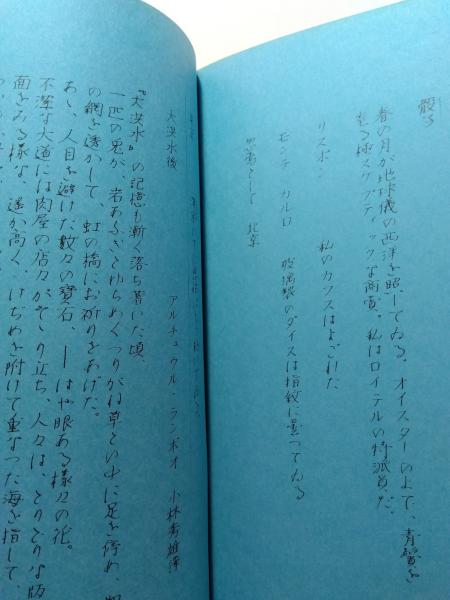 骰子
春の月が地球儀の西洋を照してゐる。オイスターの上で、青髯を
る極スケプティックな商賣。私はロイテルの特派員だ。
リスボン
私のカフスはよごれた
モンテ カルロ
玻璃製のダイスは指紋に曇つてゐる
として 北京
大洪水後
アルチュウル・ランボオ 小林秀雄譯
『大洪水』の記憶も漸く落ち着いた頃、
一匹の兎が、岩あふぎとゆらめくつりがね草との中に足を停め、
の網を透かして 虹の橋にお祈りをあげた。
あゝ、人目を避けた数々の寶石、―はや眼ある様々の花。
不潔な大道には肉屋の店々がそゝり立ち、人々は、とりどりな版
面をみる様な、遥か高く、けぢめを附けて重なつた海を指して、